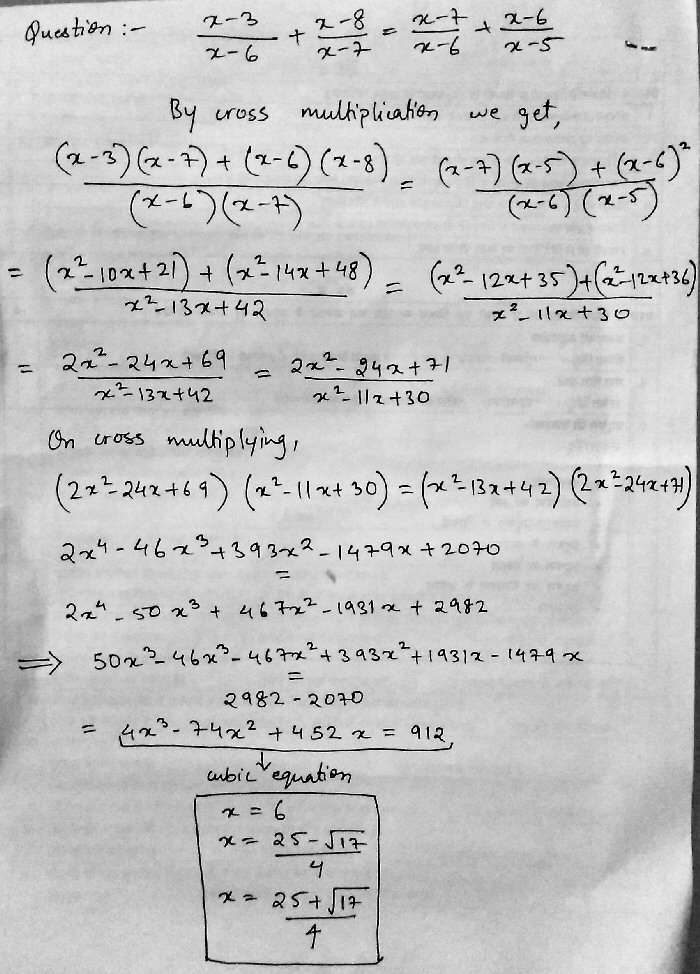 Question :- (x-3)/(x-6) + (x-8)/(x-7) = (x-7)/(x-6) + (x-6)/(x-5)
By cross multiplication we get,
((x-3)(x-7) + (x-6)(x-8))/((x-6)(x-7)) = ((x-7)(x-5) + (x-6)²)/((x-6)(x-5))
= ((x²-10x+21) + (x²-14x+48))/(x²-13x+42) = ((x²-12x+35)+(x²-12x+36))/(x²-11x+30)
= (2x²-24x+69)/(x²-13x+42) = (2x²-24x+71)/(x²-11x+30)
On cross multiplying,
(2x²-24x+69) (x²-11x+30) = (x²-13x+42) (2x²-24x+71)
2x⁴-46x³+393x²-1479x+2070
=
2x⁴-50x³+467x²-1931x+2982
⟹ 50x³-46x³-467x²+393x²+1931x-1479x
=
2982-2070
= 4x³-74x²+452x = 912
cubic equation
x = 6
x = (25-√17)/4
x = (25+√17)/4